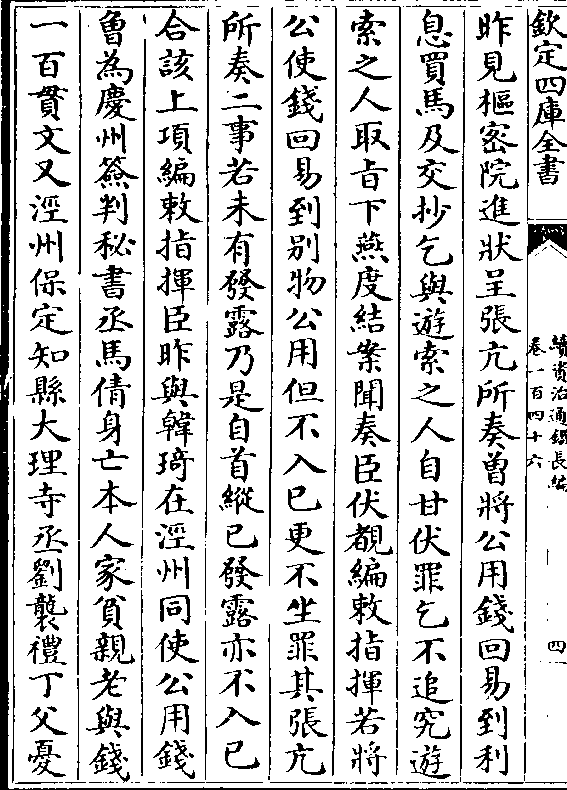 欽定四庫全書
續資治通鑑長編
卷一百四十六
四
昨見樞密院進狀呈張亢所奏曾將公用錢回易到利
息買馬及交抄乞與遊索之人自甘伏罪乞不追究遊
索之人取旨下燕度結案聞奏臣伏覩編敕指揮若將
公使錢回易到别物公用但不入已更不坐罪其張亢
所奏二事若未有發露乃是自首縱已發露亦不入已
合該上項編敕指揮臣昨與韓琦在涇州同使公用錢
曾為慶州簽判秘書丞馬倩身亡本人家貧親老與錢
一百貫文又涇州保定知縣大理寺丞劉襲禮丁父憂